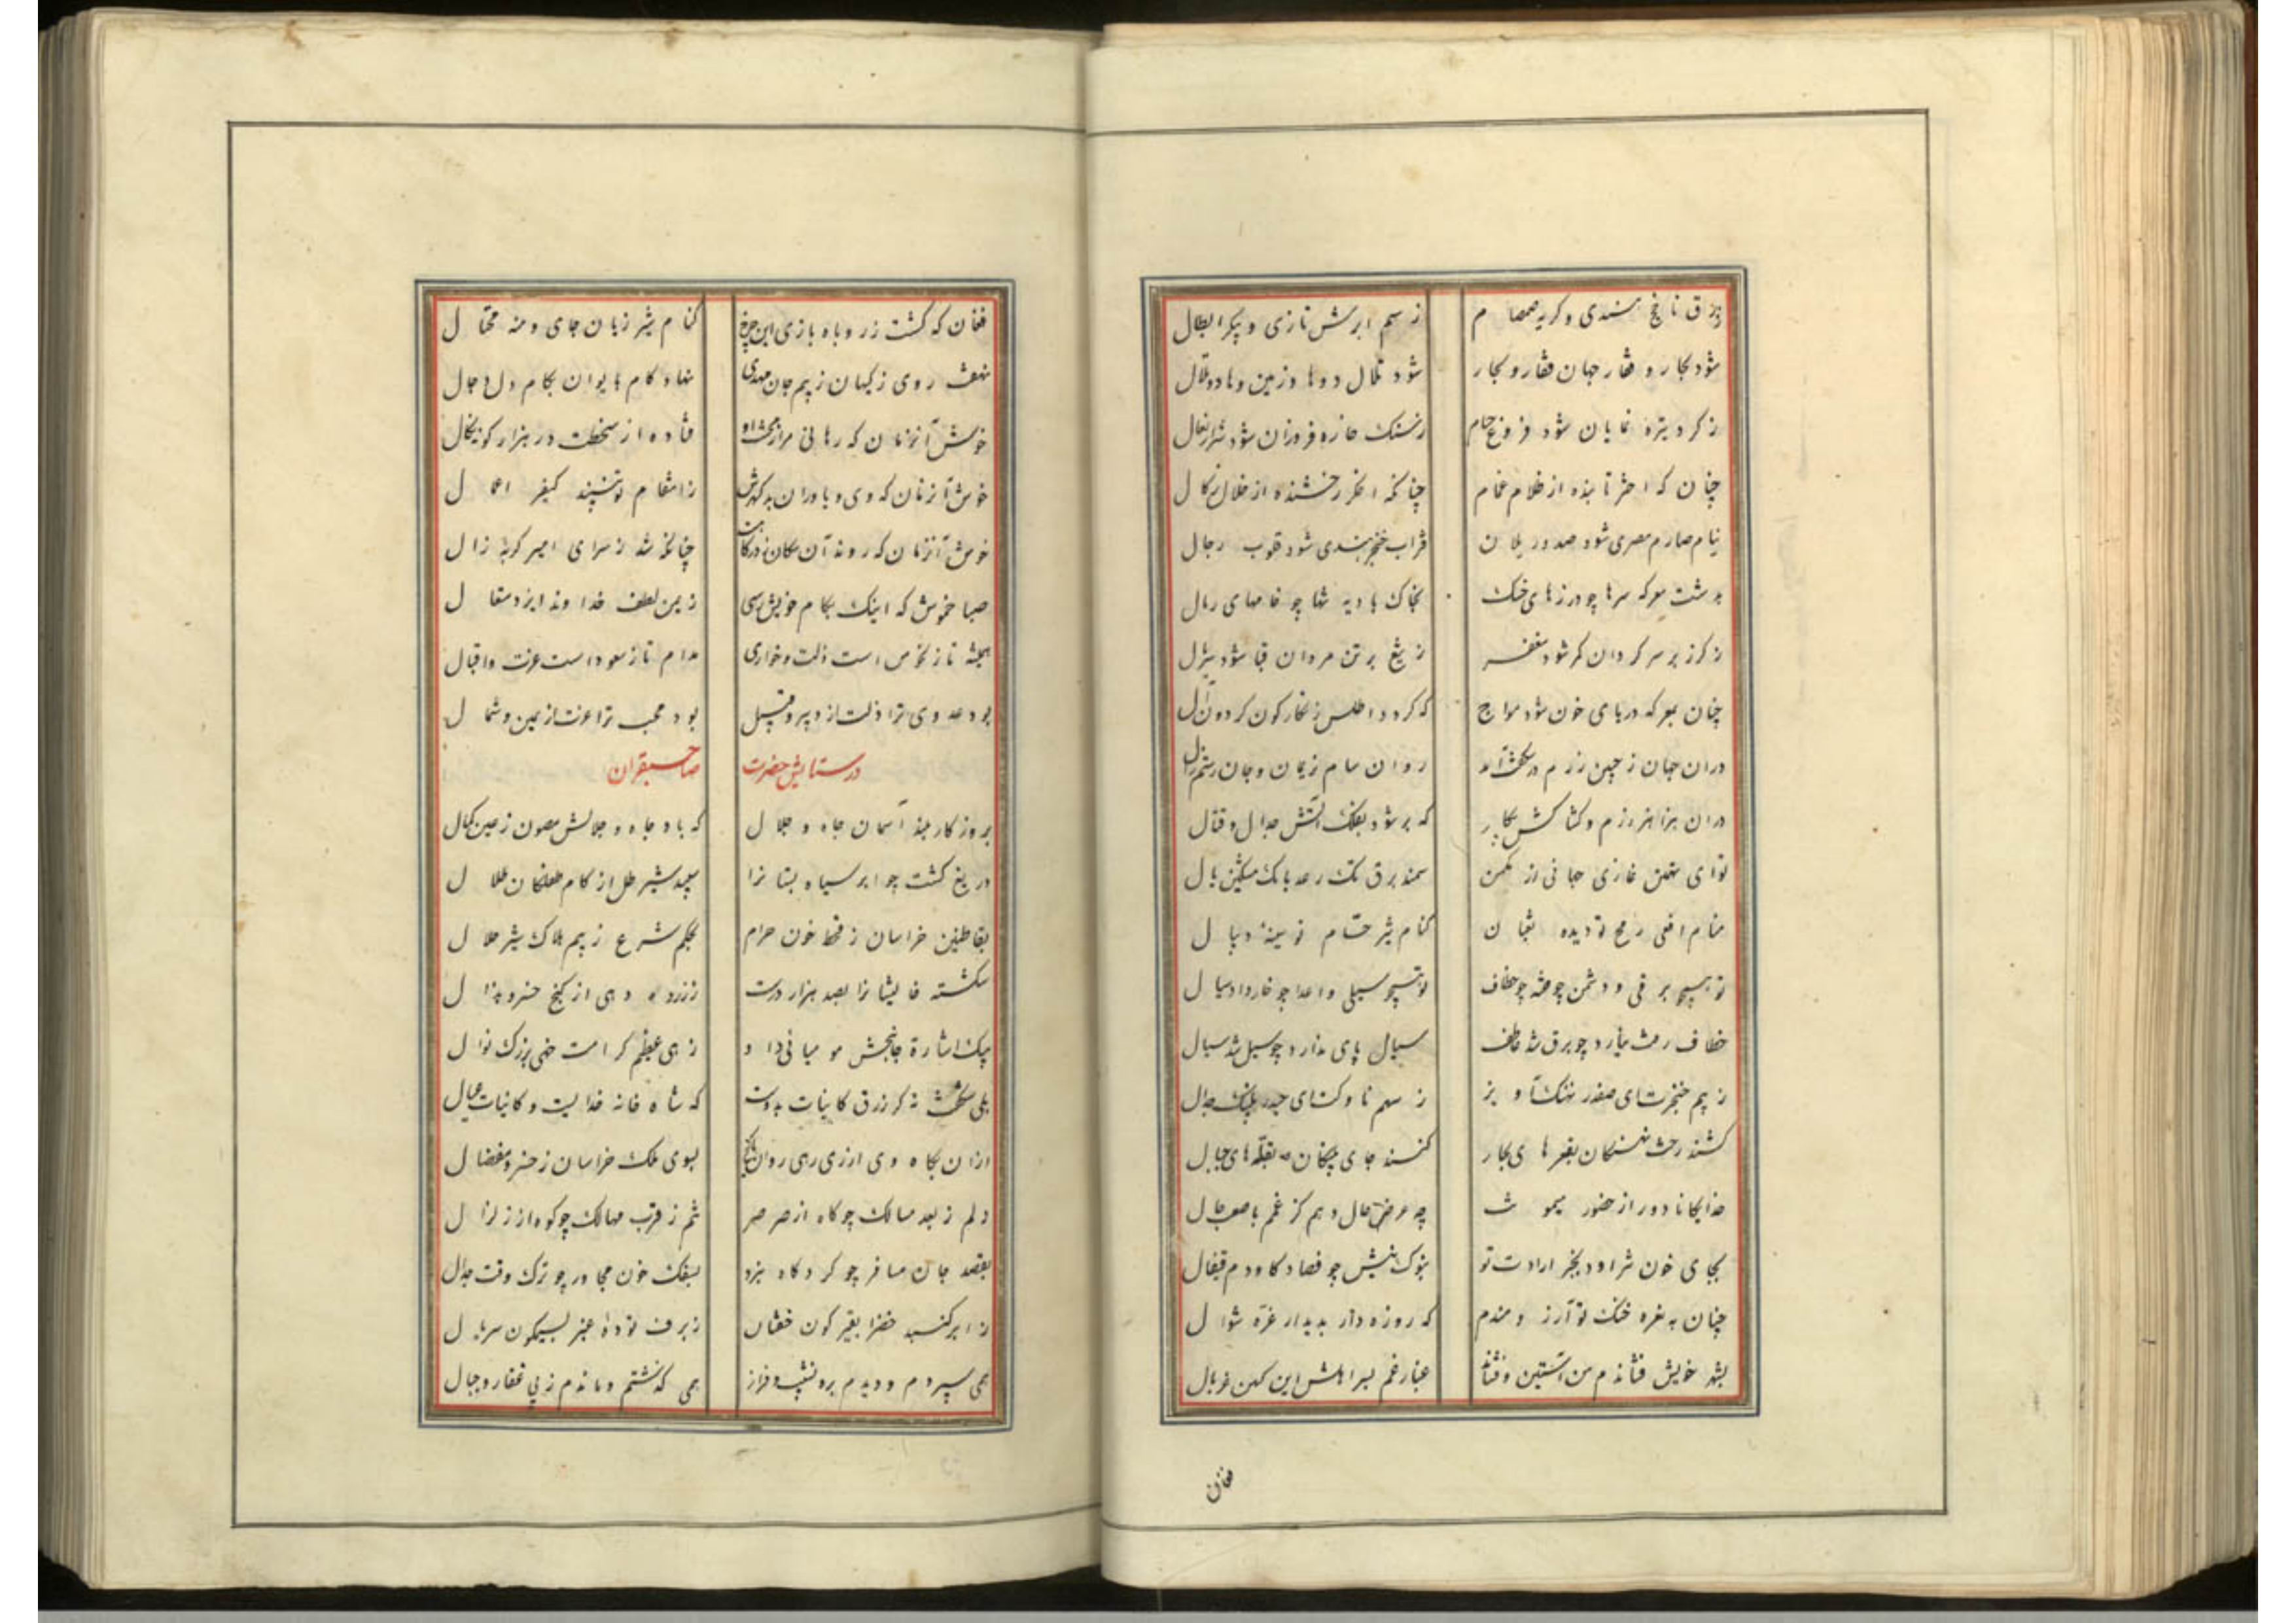 ز سم ابرش تازی و پیکر ابطال
شود بحار و قفار جهان قفار و بحار
شود تلال و وهاد زمین وهاد و تلال
ز کرد تیره نمایان شود فروغ حسام
ز سنک خاره فروزان شود شرار نعال
چنان که اختر تابنده از ظلام غمام
چنانکه اخکر رخشنده از خلال زکال
نیام صارم مصری شود صدور یلان
قراب خنجر هندی شود قلوب رجال
بدشت معرکه سرها چو درزهای خنک
بخاک بادیه تنها چو خامهای رمال
ز کرز بر سر کردان کمر شود مغفر
ز تیغ بر تن مردان قبا شود سربال
چنان بمعرکه دریای خون شود مواج
که کردد اطلس زنکارکون کردون آل
در آن جهان ز چنین رزم در شکفت آمد
روان سام نریمان و جان رستم زال
در آن هزاهز رزم و کشاکش پیکار
که بر شود بفلک آتش جدال و قتال
توای تهمتن غازی جهانی از مکمن
سمند برق تک رعد بانک مشکین یال
منام افعی رمح تو دیده ثعبان
کنام شیر حسام تو سینه ریبال
تو همچو برقی و دشمن چو خشه چو خطاف
تو همچو سیلی و اعدا چو خار وادسیال
خطاف رخت نیارد چو برق شد خاطف
سیال پای ندارد چو سیل شد سیال
ز بیم خنجرت ای صفدر نهنک آویز
ز سهم ناوکت ای حیدر پلنک جدال
کشند رخت نهنکان بقعرهای بحار
کنند جای پلنکان بقله‌های جبال
خدایکانا دور از حضور میمونت
چه عرض حال دهم کز غمم باصعب حال
بجای خون شراود بجز ارادت تو
بنوک نیش چو فصاد کاودم قیفال
چنان بغره خنک تو آرزومندم
که روزه‌دار بدیدار غره شوال
بشهر خویش فشاندم من آستین و فشاند
غبار غم بسرا هلش این کهن غربال
فغان
فغان که کشت ز روباه بازی این چرخ
کنام شیر ژیان جای ومنه محتال
نهفت روی ز کیهان ز بیم جان مهدی
نهاد کام بایوان بکام دل دجال
خوش آنزمان که رهانی مرا ز بخت و او
فتاده از سخطت در هزار کونه نکال
خوش آنزمان که وی و یاوران بدکهرش
ز انتقام تو بینند کیفر اعمال
خوش آنزمان که روند آن سکان ز درکاهت
چنانکه شد ز سرای امیر کربه زال
صبا خموش که اینک بکام خویش رسی
ز یمن لطف خداوند ایزد متعال
همیشه تا ز نحوس است ذلت و خواری
مدام تا ز سعود است عزت و اقبال
بود عدوی ترا ذلت از دبیر و قبیل
بود محب ترا عزت از یمین و شمال
در ستایش حضرت صاحبقران
بروزکار بلند آسمان جاه و جلال
که باد جاه و جلالش مصون ز عین کمال
دریغ کشت چو ابر سیاه پستانرا
سپید شیر طل از کام طفلکان طلال
بقاطنین خراسان ز قحط خون حرام
بحکم شرع ز بیم هلاک شیر حلال
شکسته فالیشانرا بصد هزار درست
ز زر ده دهی از کنج خسرو بذال
بیک اشاره جانبخش مومیائی داد
زهی عظیم کرامت خهی بزرک نوال
بلی شکفت نه کر رزق کاینات بدوست
که شاه خانه خدایست و کاینات عیال
از آن بکاه وی از ری رهی روان
بسوی ملک خراسان ز خسرو مفضال
دلم ز بعد مسالک چو کاه از صرصر
تنم ز قرب مهالک چو کوه از زلزال
بقصد جان مسافر چو کرد کاه نبرد
بسفک خون مجاور چو ترک وقت جدال
ز ابر کنبد خضرا بقیرکون خفتان
ز برف توده غبرا بسیمکون سربال
همی سپردم و دیدم بره نشیب و فراز
همی کذشتم و ماندم ز پی قفار و جبال